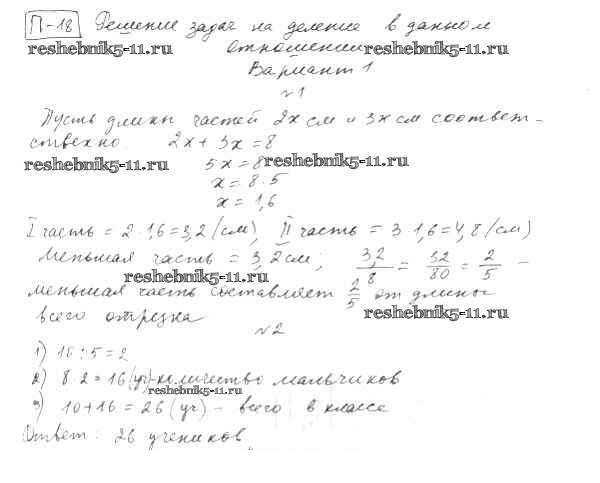 П-18 Решение задач на деление в данном
reshebnik5-11.ru отношении reshebnik5-11.ru
Вариант 1
№1
Пусть длины частей 2х см и 3х см соответ-
ственно. 2х + 3х = 8
reshebnik5-11.ru 5х = 8 reshebnik5-11.ru
х = 8 : 5
х = 1,6
I часть = 2·1,6=3,2 (см), II часть = 3·1,6=4,8 (см)
Меньшая часть = 3,2 см; 3,2/8 = 32/80 = 2/5 –
reshebnik5-11.ru
меньшая часть составляет 2/5 от длины
всего отрезка reshebnik5-11.ru
№2
1) 10 : 5 = 2
2) 8·2 = 16 (уч) - количество мальчиков
reshebnik5-11.ru
3) 10+16 = 26 (уч) - всего в классе
Ответ: 26 учеников